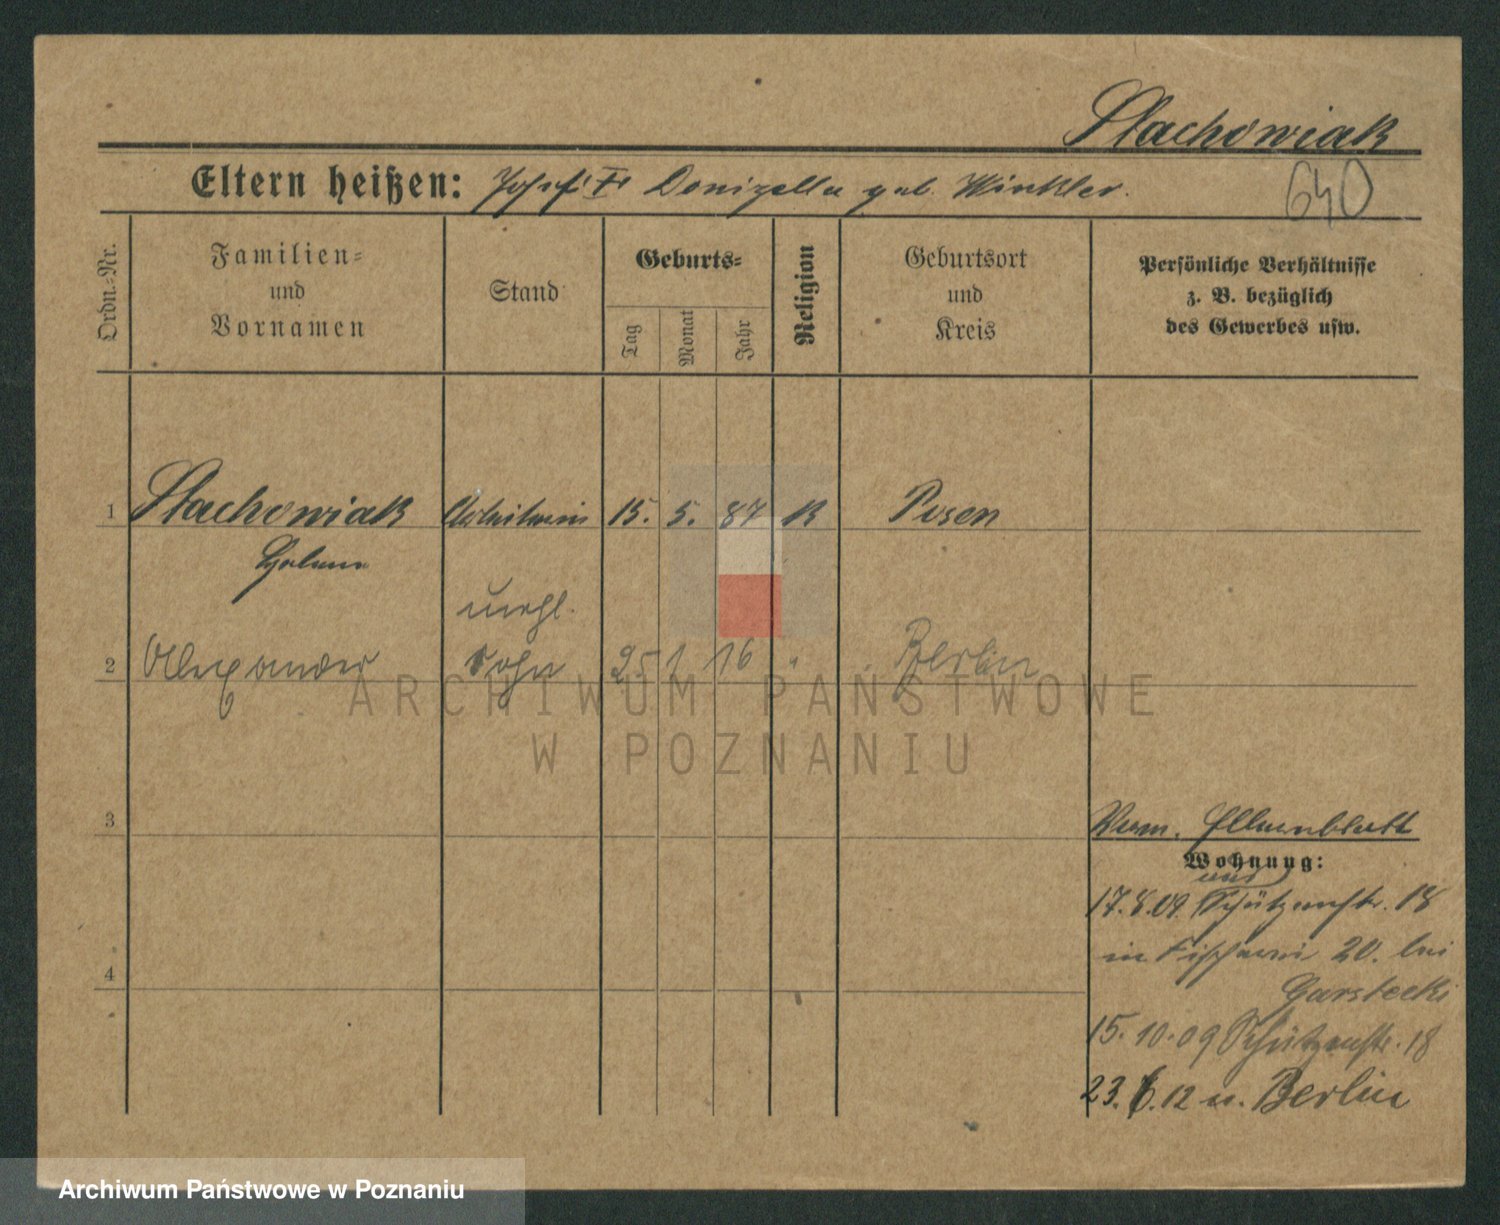 Stachowiak
Eltern heißen: Josef u. geb. Winkler.
640
Ordn.-Nr.
Familien-
und
Vornamen
Stand
Geburts-
Tag
Monat
Jahr
Religion
Geburtsort
und
Kreis
Persönliche Verhältnisse
z. B. bezüglich
des Gewerbes usw.
1 Stachowiak Arbeiterin 15. 5. 87 K Posen
Helene
unehl.
2 Alexander Sohn 25 1 16 " Berlin
ARCHIWUM PAŃSTWOWE
W POZNANIU
3
Verm. Elternblatt
Wohnung:
aus
17.8.09. Schützenstr. 18
in Fischerei 20. bei
Garstecki
4
15.10.09 Schützenstr. 18
23.6.12 n. Berlin
Archiwum Państwowe w Poznaniu